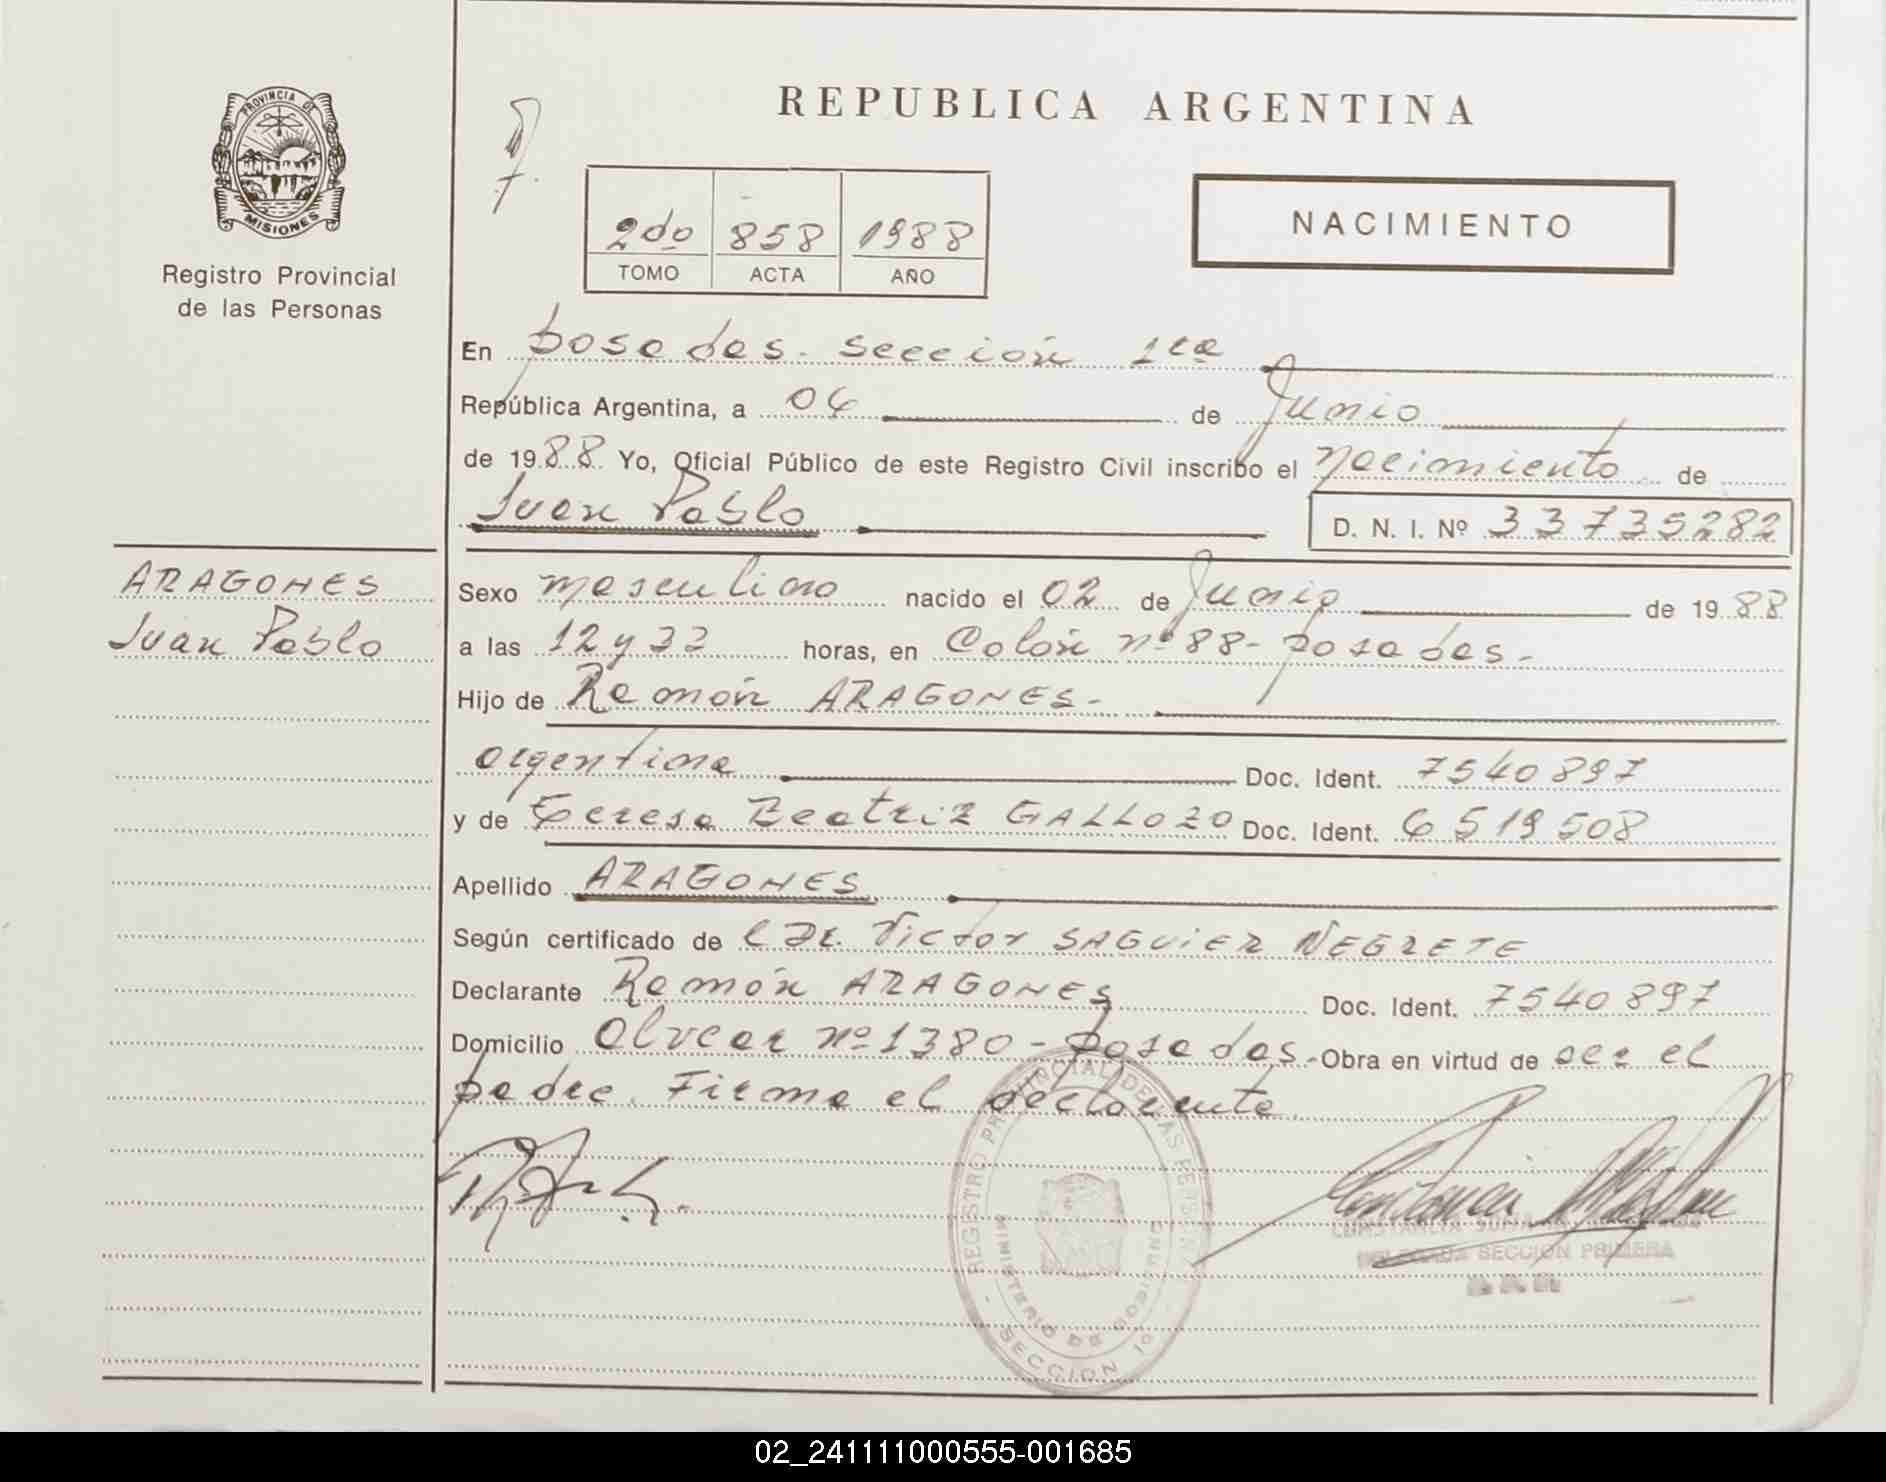 REPUBLICA ARGENTINA
PROVINCIA DE MISIONES
Registro Provincial
de las Personas
2do 858 1988
TOMO ACTA AÑO
NACIMIENTO
En Posadas. Sección 1ra
República Argentina, a 06 de Junio
de 1988 Yo, Oficial Público de este Registro Civil inscribo el nacimiento de
Juan Pablo D. N. I. Nº 33735282
ARAGONES
Juan Pablo
Sexo masculino nacido el 02 de Junio de 1988
a las 12 y 33 horas, en Colón nº 88 - Posadas.-
Hijo de Ramón ARAGONES.-
argentina Doc. Ident. 7540897
y de Teresa Beatriz GALLOZO Doc. Ident. 6519508
Apellido ARAGONES
Según certificado de Dr. Victor SAGUIER NEGRETE
Declarante Ramón ARAGONES Doc. Ident. 7540897
Domicilio Alvear nº 1380 - Posadas.- Obra en virtud de ser el
padre. Firma el declarante.
REGISTRO PROVINCIAL DE LAS PERSONAS
MINISTERIO DE GOBIERNO
SECCION 1º
CONSTANCIA
DELEGADA SECCION PRIMERA
02_241111000555-001685